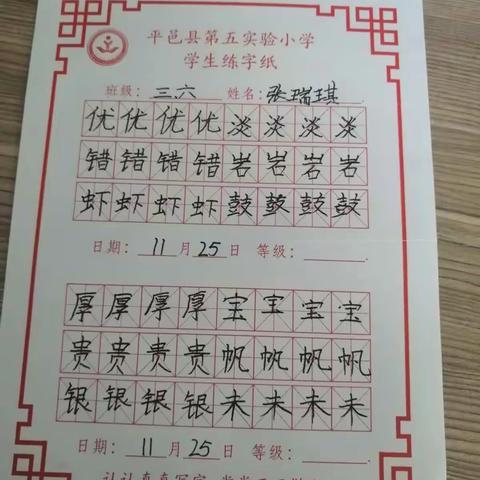 平邑县第五实验小学
学生练字纸
班级：三六 姓名：张瑞琪
优优优优淡淡淡淡
错错错错岩岩岩岩
虾虾虾虾鼓鼓鼓鼓
日期：11月25日 等级：
厚厚厚厚宝宝宝宝
贵贵贵贵帆帆帆帆
银银银银未未未未
日期：11月25日 等级：
认认真真写字